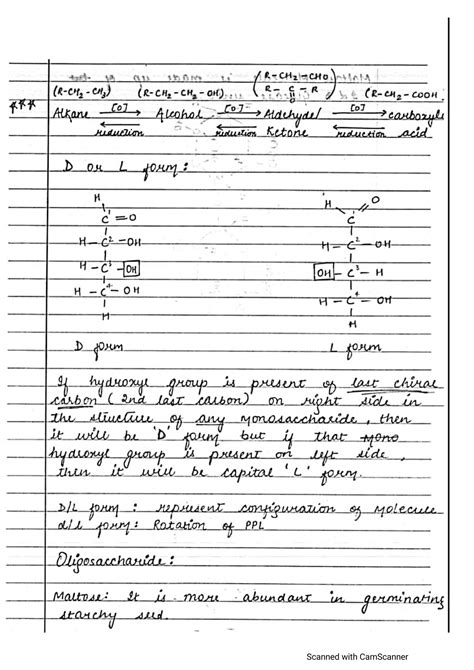 (R-CH₂-CH₃) (R-CH₂-CH₂-OH) (R-CH₂-CHO (R-CH₂-COOH
R-C-R)
O
*** Alkane [O] Alcohol [O] Aldehyde/ [O] carboxyli
reduction reduction Ketone reduction acid
D or L form:
H H O
C=O C
H-C²-OH H-C²-OH
H-C³-OH OH-C³-H
H-C⁴-OH H-C⁴-OH
H H
D form L form
If hydroxyl group is present of last chiral
carbon (2nd last carbon) on right side in
the structure of any monosaccharide, then
it will be 'D' form but if that mono
hydroxyl group is present on left side,
then it will be capital 'L' form.
D/L form: represent configuration of molecule
d/l form: Rotation of PPL
Oligosaccharide:
Maltose: It is more abundant in germinating
starchy seed.
Scanned with CamScanner